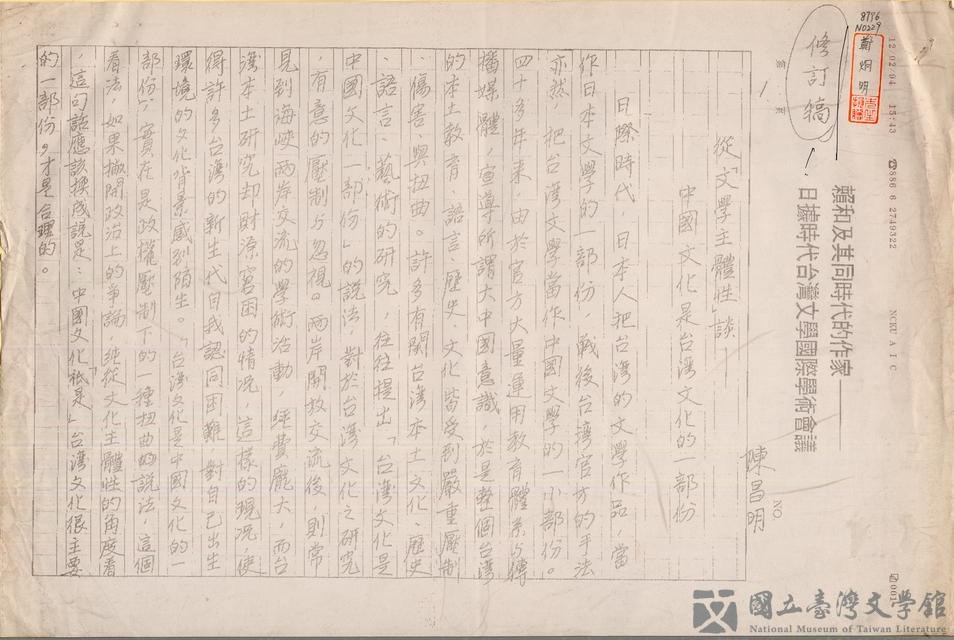 8796
N0229
修訂稿
!
鄭烱明
12/02/94 15:43 ☎886 6 2749322 NCKU A I C 001
賴和及其同時代的作家——
日據時代台灣文學國際學術會議
NO
1
陳昌明
從「文學主體性」談——
中國文化是台灣文化的一部份
日際時代,日本人把台灣的文學作品,當
作日本文學的一部份,戰後台灣官方的手法
亦然,把台灣文學當作中國文學的一小部份。
四十多年來,由於官方大量運用教育體系与傳
播媒體,宣導所謂大中國意識,於是整個台灣
的本土教育、語言、歷史、文化皆受到嚴重壓制
、傷害、與扭曲。許多有關台灣本土文化、歷史
、語言、藝術的研究,往往提出「台灣文化是
中國文化一部份」的說法,對於台灣文化之研究
,有意的壓制与忽視。兩岸開放交流後,則常
見到海峽兩岸交流的學術活動,經費龐大,而台
灣本土研究却財源窘困的情況,這樣的現況,使
得許多台灣的新生代自我認同困難,對自己出生
環境的文化背景感到陌生。「台灣文化是中國文化的一
部份」,實在是政權壓制下的一種扭曲的說法,這個
看法,如果撇開政治上的爭論,純從文化主體性的角度看
,這句話應該換成說是:中國文化「祇是」台灣文化很主要
的一部份,才是合理的。
國立臺灣文學館
National Museum of Taiwan Literature